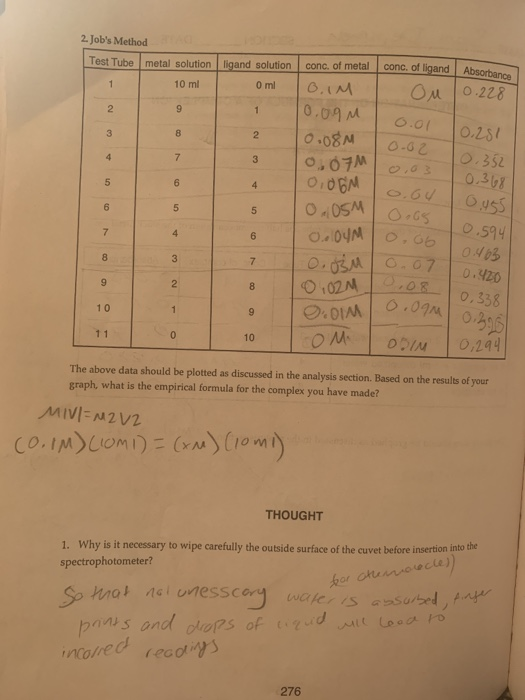 2. Job's Method
Test Tube metal solution ligand solution conc. of metal conc. of ligand Absorbance
1 10 ml 0 ml 0.1M 0M 0.228
2 9 1 0.09M 0.01 0.251
3 8 2 0.08M 0.02 0.352
4 7 3 0.07M 0.03 0.368
5 6 4 0.06M 0.04 0.455
6 5 5 0.05M 0.05 0.594
7 4 6 0.04M 0.06 0.463
8 3 7 0.03M 0.07 0.420
9 2 8 0.02M 0.08 0.338
10 1 9 0.01M 0.09M
11 0 10 0M 0.1M 0.294
The above data should be plotted as discussed in the analysis section. Based on the results of your
graph, what is the empirical formula for the complex you have made?
M1V1=M2V2
(0.1M)(10ml) = (xM)(10ml)
THOUGHT
1. Why is it necessary to wipe carefully the outside surface of the cuvet before insertion into the
spectrophotometer?
So that unesscery water is assorbed, finger
prints and drops of liquid will lead to
incorrect readings
276